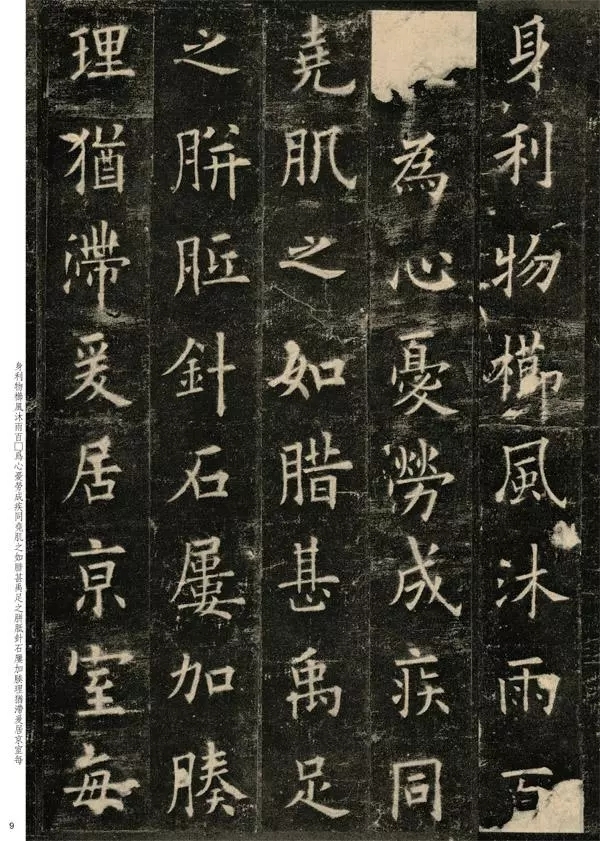 身利物櫛風沐雨百
為心憂勞成疾同
堯肌之如腊甚禹足
之胼胝針石屢加腠
理猶滯爰居京室每
身利物櫛風沐雨百□爲心憂勞成疾同堯肌之如腊甚禹足之胼胝針石屢加腠理猶滯爰居京室每
9